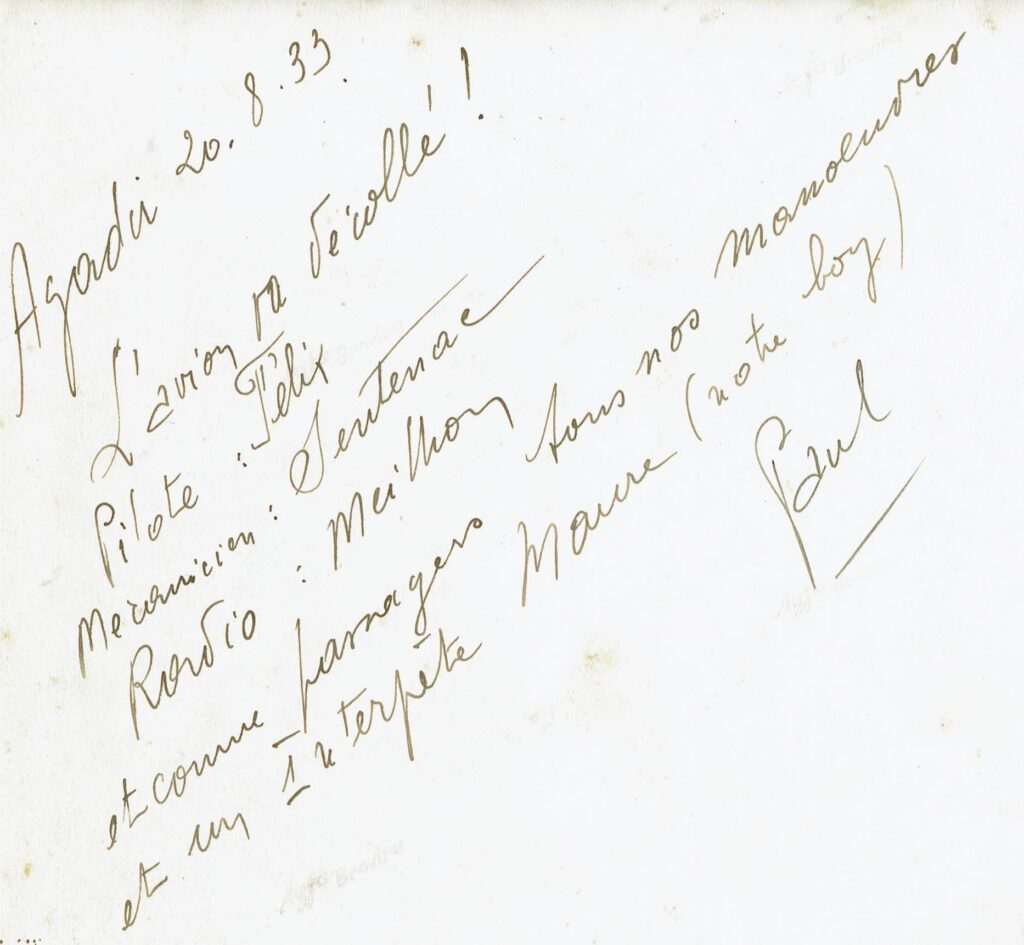 Agadir 20.8.33.
L'avion va décollé!
Pilote : Félix
Mécanicien : Sentenac
Radio : Meilhon
et comme passagers tous nos manoeuvres
et un Interpète Maure (notre boy)
Paul